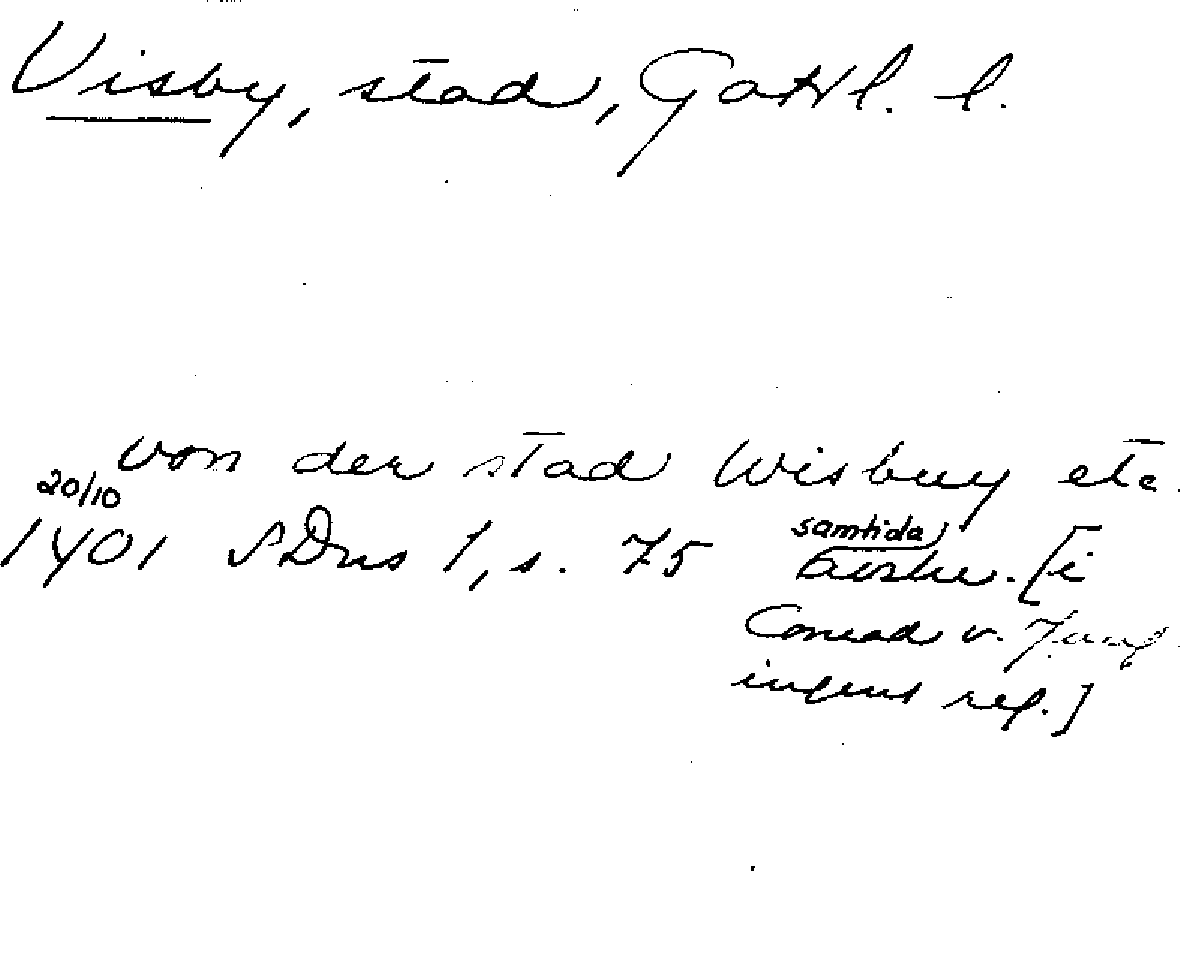 Visby, stad, Gotl. l.
von der stad Wisbuy etc.
20/10
1401 SDns 1, s. 75 samtida
avskr. [i
Conrad v. Jung
ingens reg.]